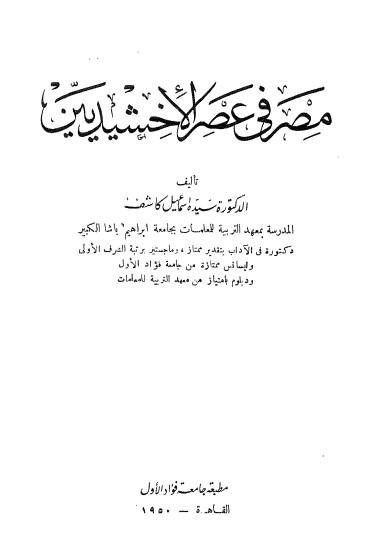 مصر في عصر الإخشيديين
تأليف
الدكتورة سيدة إسماعيل كاشف
المدرسة بمعهد التربية للمعلمات بجامعة ابراهيم باشا الكبير
دكتورة فى الآداب بتقدير ممتاز، وماجستير برتبة الشرف الأولى
وليسانس ممتازة من جامعة فؤاد الأول
ودبلوم بامتياز من معهد التربية للمعلمات
مطبعة جامعة فؤاد الأول
القاهرة — ١٩٥٠